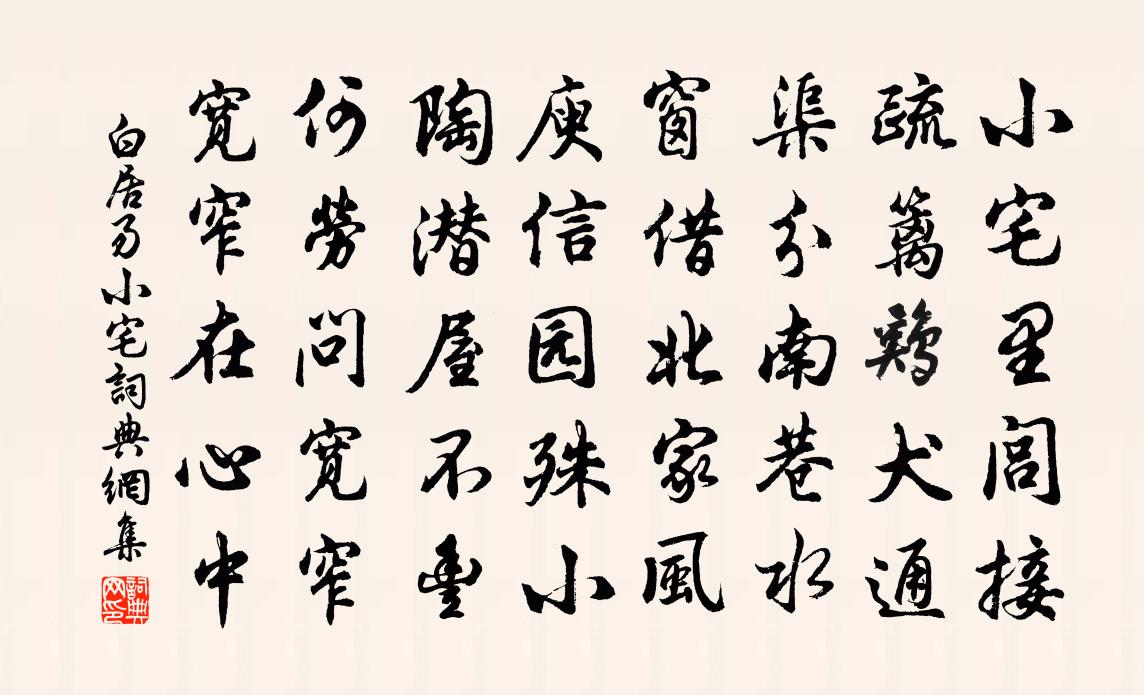 小宅里閭接
疏篱鷄犬通
渠分南巷水
窗借北家風
庾信园殊小
陶潜屋不豊
何勞問寬窄
寬窄在心中
白居易小宅詞典網集
詞典網印